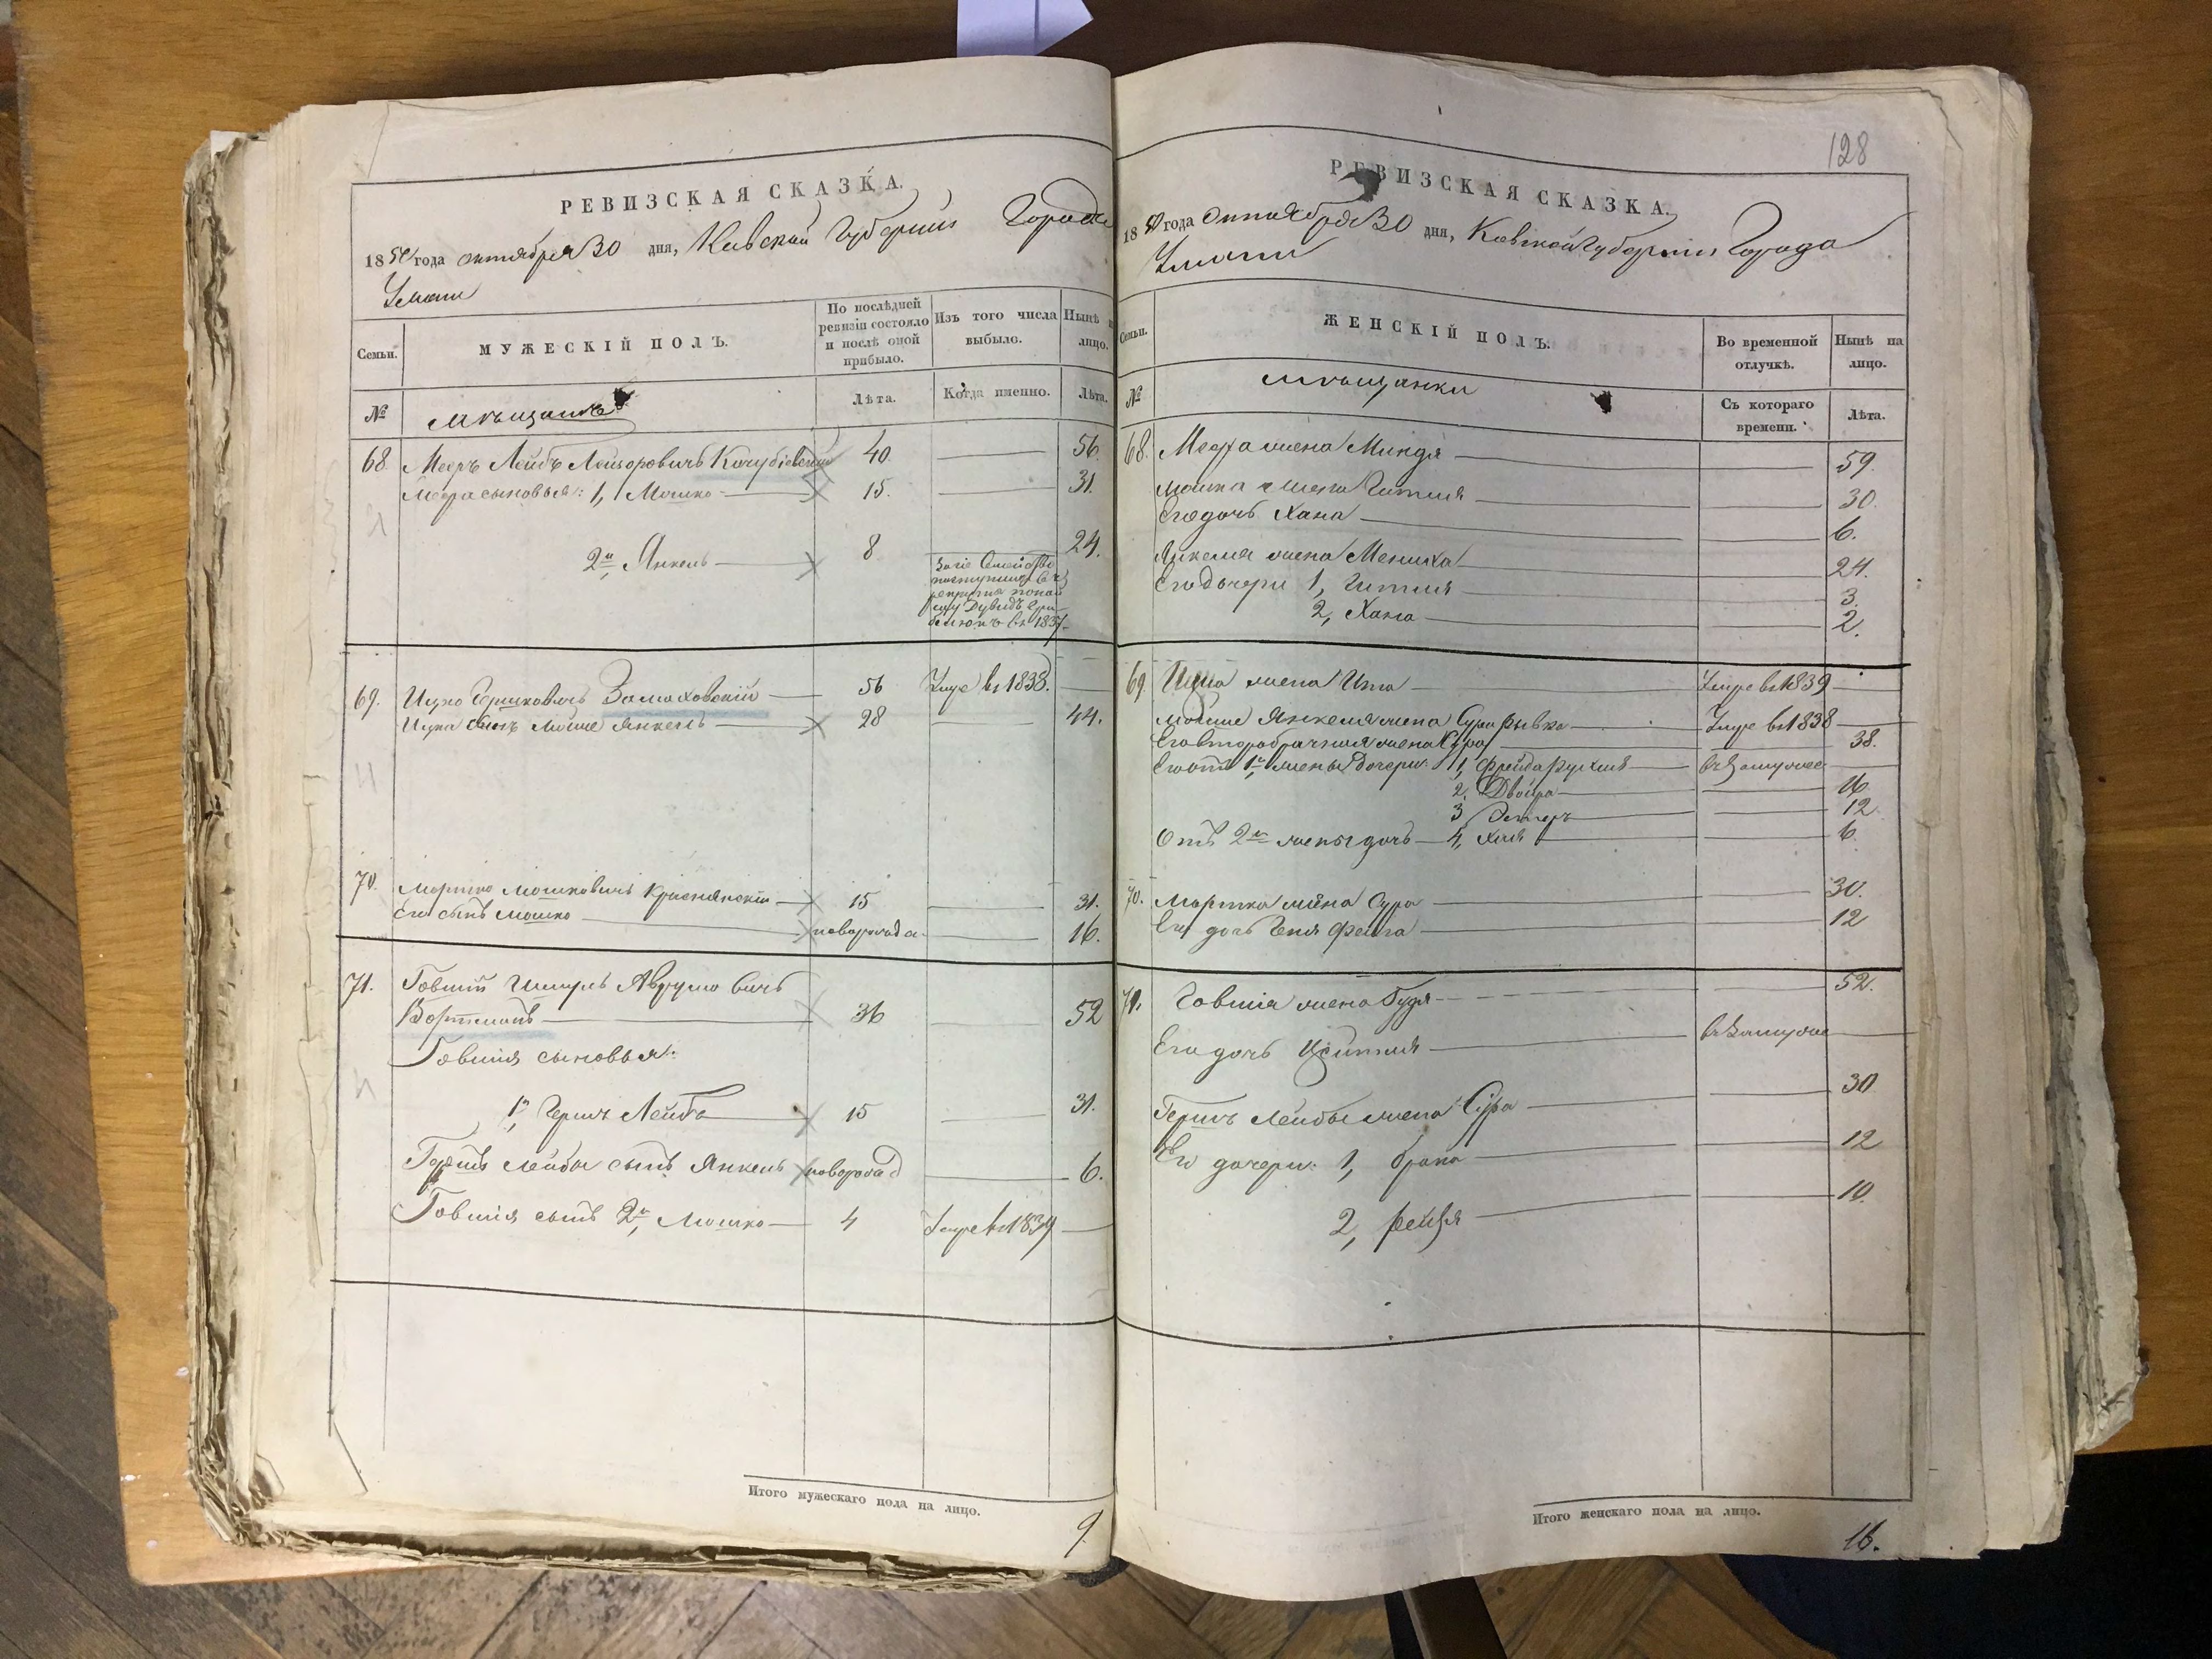 РЕВИЗСКАЯ СКАЗКА.
1850 года октября 30 дня, Киевской Губернии Города
Умани
Семьи.
МУЖЕСКІЙ ПОЛЪ.
По послѣдней ревизіи состояло и послѣ оной прибыло.
Изъ того числа выбыло.
Нынѣ на лицо.
№
мѣщане
Лѣта.
Когда именно.
Лѣта.
68 Меръ Лейбъ Лейзоровичъ 40. 56.
Мера сыновья: 1, Мошко 15. 31.
2й, Янкель 8 24.
въ 1837
69. Ицко Гершковичъ Замиховскій 56 Умре въ 1838.
Ицка сынъ Мойше Янкель 28 44.
70. Мортко Мошковичъ Краснянскій 15 31.
Его сынъ Мошко новорожд 16.
71. Говшій Шмуль Аврумовичъ
Вортманъ 36 52
Говшія сыновья:
1й, Гершъ Лейба 15 31.
Гершъ Лейбы сынъ Янкель новорожд 6.
Говшія сынъ 2й, Мошко 4 Умре въ 1839
Итого мужескаго пола на лицо.
9.
128
РЕВИЗСКАЯ СКАЗКА.
1850 года октября 30 дня, Киевской Губерніи Города
Умани
Семьи.
ЖЕНСКІЙ ПОЛЪ.
Во временной отлучкѣ.
Нынѣ на лицо.
№
мѣщанки
Съ котораго времени.
Лѣта.
68. Мера жена Миндя 59.
Мошка жена Гитля 30.
Его дочь Хана 6.
Янкеля жена Мениха 24.
Его дочери 1, Гитля 3.
2, Хана 2.
69. Ицка жена Ита Умре въ 1839
Мойше Янкеля жена Сура Рывка Умре въ 1838
Его второбрачная жена Сура 38.
Его отъ 1й жены дочери: 1, Фрейда Рухля въ замужес
2. Двойра 16.
3 Эстеръ 12.
Отъ 2й жены дочь 4, Хая 6.
70. Мортка жена Сура 30.
Его дочь Феига 12
71. Говшія жена Будя 52.
Его дочь Цейтля въ замужес
Гершъ Лейбы жена Сура 30
Его дочери: 1, брана 12
2, Рейзя 10.
Итого женскаго пола на лицо.
16.